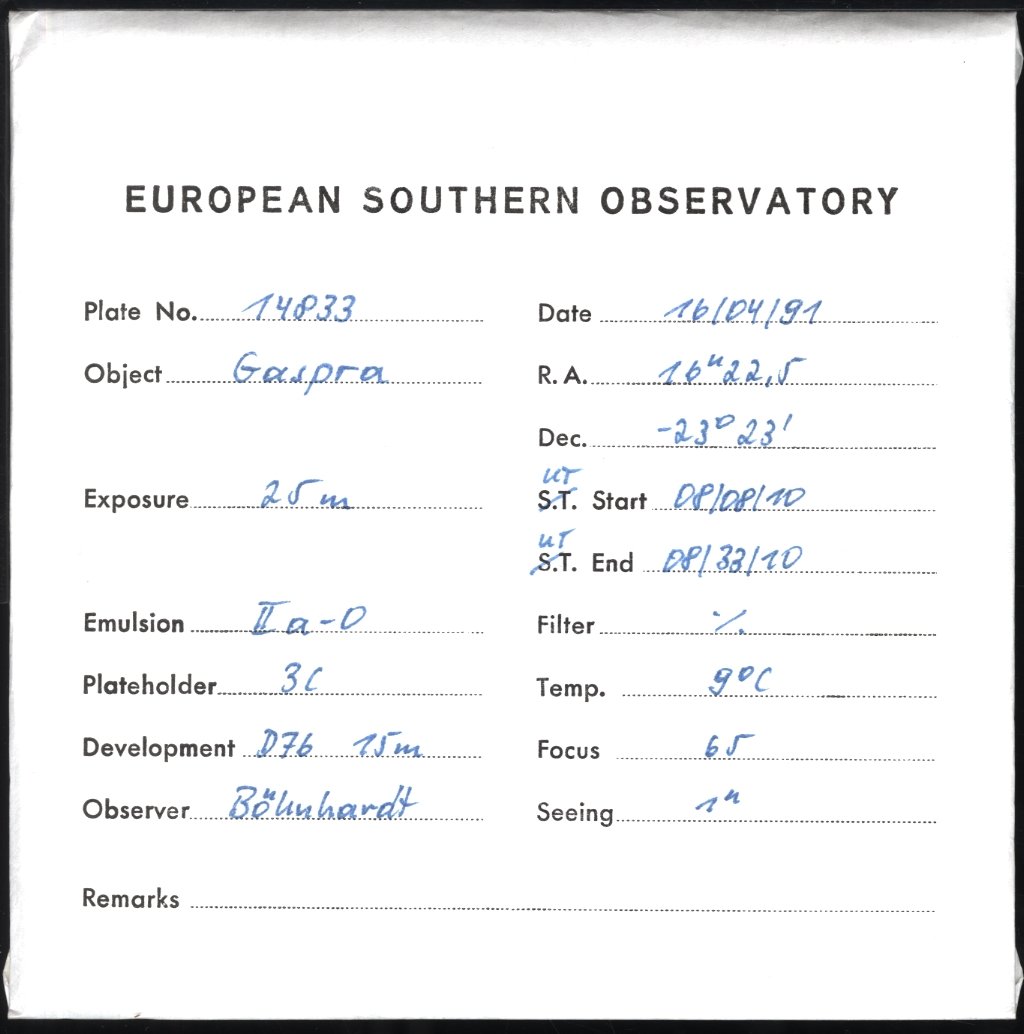 EUROPEAN SOUTHERN OBSERVATORY
Plate No. 14833 Date 16/04/91
Object Gaspra R.A. 16ʰ22,5
Dec. -23° 23'
UT
Exposure 25m S.T. Start 08/08/10
UT
S.T. End 08/33/10
Emulsion IIa-O Filter ·/.
Plateholder 3C Temp. 9°C
Development D76 15m Focus 65
Observer Böhnhardt Seeing 1"
Remarks